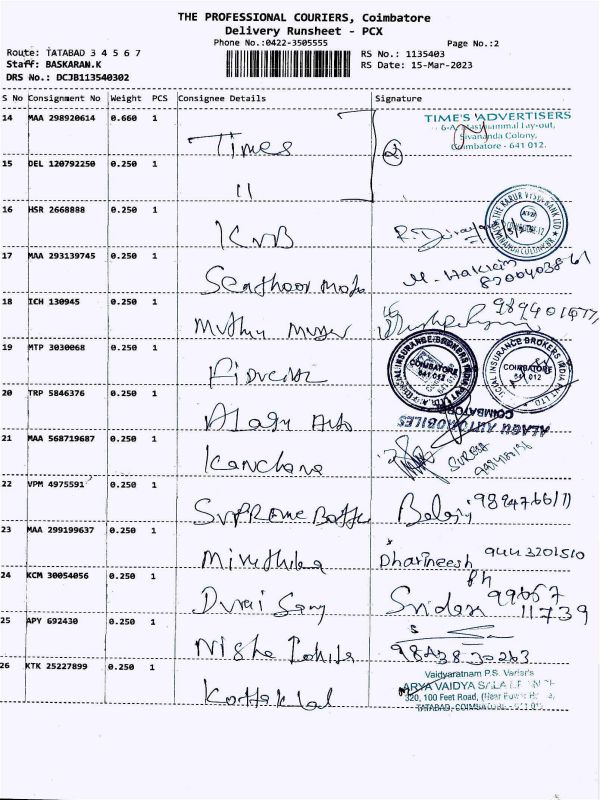 THE PROFESSIONAL COURIERS, Coimbatore
Delivery Runsheet - PCX
Phone No.:0422-3505555 Page No.:2
Route: TATABAD 3 4 5 6 7 RS No.: 1135403
Staff: BASKARAN.K RS Date: 15-Mar-2023
DRS No.: DCJB113540302
S No Consignment No Weight PCS Consignee Details Signature
14 MAA 298920614 0.660 1 Times TIME'S ADVERTISERS
Sivananda Colony,
Coimbatore - 641 012.
15 DEL 120792250 0.250 1 11 2
16 HSR 2668888 0.250 1 KVB THE KARUR VYSYA BANK LTD
17 MAA 293139745 0.250 1 M. Hakkim
8200403861
18 ICH 130945 0.250 1 Muthu
19 MTP 3030068 0.250 1 COIMBATORE 641 012 COIMBATORE 641 012
20 TRP 5846376 0.250 1 Alagu Auto COIMBATORE
ALAGU AUTOMOBILES
21 MAA 568719687 0.250 1 Kanchana
22 VPM 4975591 0.250 1 Supreme Balaji
23 MAA 299199637 0.250 1 Miruthika Dharineesh 9443201510
24 KCM 30054056 0.250 1 Durai Samy Sridar 99657
11739
25 APY 692430 0.250 1 Nisha
98438 30263
26 KTK 25227899 0.250 1 Kottakkal Vaidyaratnam P.S. Varier's
ARYA VAIDYA SALA
320, 100 Feet Road,
TATABAD, COIMBATORE